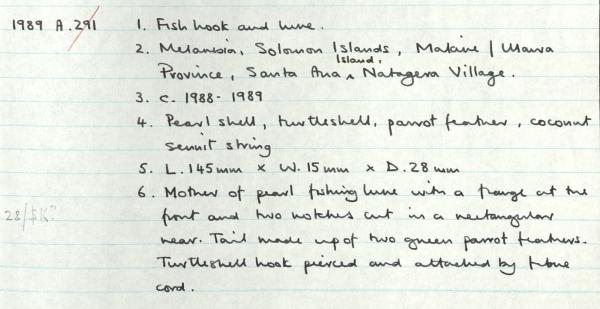 1989 A.291 1. Fish hook and lure.
2. Melanesia, Solomon Islands, Makira / Ulawa
Island,
Province, Santa Ana ^ Natagera Village.
3. c. 1988-1989
4. Pearl shell, turtleshell, parrot feather, coconut
sennit string
5. L. 145mm x W. 15mm x D. 28mm
6. Mother of pearl fishing lure with a flange at the
front and two notches cut in a rectangular
rear. Tail made up of two green parrot feathers.
Turtleshell hook pierced and attached by fibre
cord.